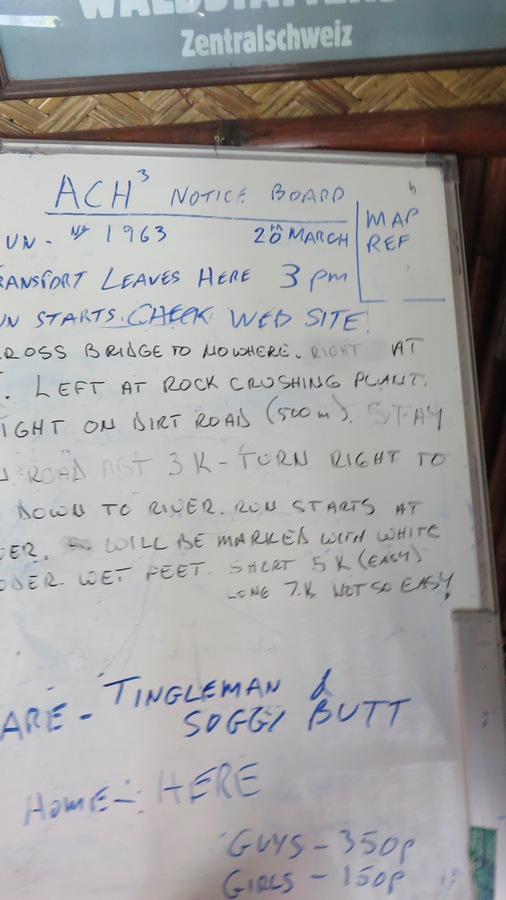 WALDSTÄTTER
Zentralschweiz
ACH³ NOTICE BOARD
UN - Nº 1963 20TH MARCH
MAP
REF
RANSPORT LEAVES HERE 3 pm
UN STARTS. CHECK WEB SITE!
ROSS BRIDGE TO NOWHERE. RIGHT AT
. LEFT AT ROCK CRUSHING PLANT.
IGHT ON DIRT ROAD (500m). STAY
ROAD ABT 3K - TURN RIGHT TO
DOWN TO RIVER. RUN STARTS AT
VER. WILL BE MARKED WITH WHITE
DER. WET FEET. SHORT 5K (EASY)
LONG 7.K NOT SO EASY!
ARE - TINGLEMAN &
SOGGY BUTT
HOME - HERE
GUYS - 350p
GIRLS - 150p